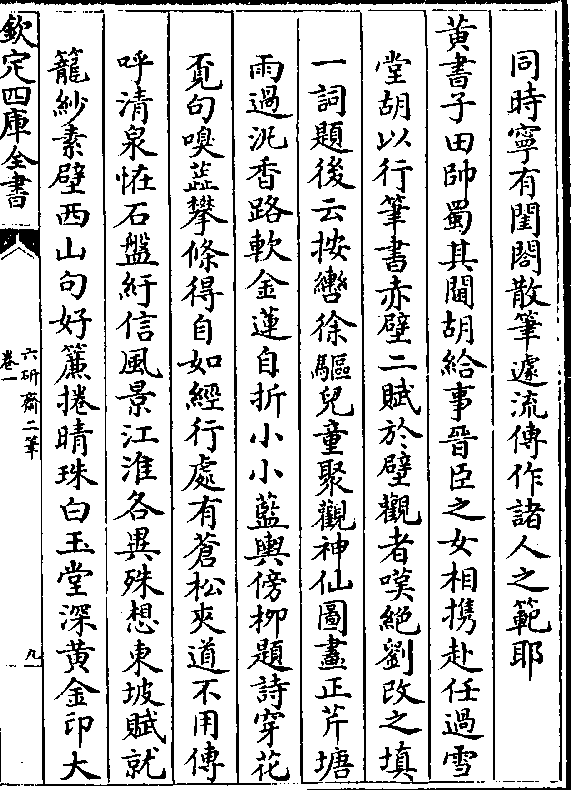 同時寧有閨閤散筆遽流傳作諸人之範耶
黄書子由帥蜀其閫胡給事晉臣之女相携赴任過雪
堂胡以行筆書赤壁二賦於壁觀者嘆絶劉改之填
一詞題後云按轡徐驅兒童聚觀神仙圖畫正芹塘
雨過泥香路軟金蓮自折小小藍輿傍栁題詩穿花
覓句嗅蘂攀條得自如經行處有蒼松夾道不用傳
呼清泉怪石盤紆信風景江淮各異殊想東坡賦就
籠紗素壁西山句好簾捲晴珠白玉堂深黄金印大
欽定四庫全書
六研齋二筆
卷一
九